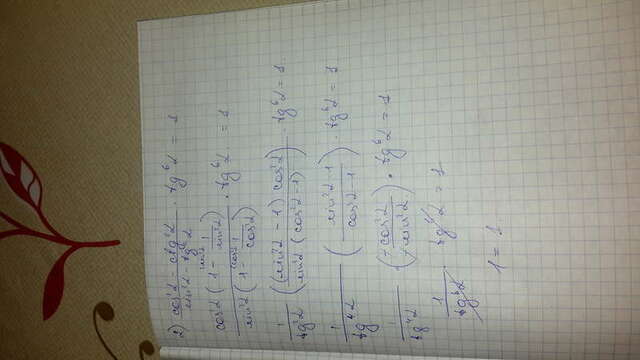 2) (cos²α - ctg²α)/(sin²α - tg²α) · tg⁶α = 1
cos²α(1 - 1/sin²α)/sin²α(1 - 1/cos²α) · tg⁶α = 1
1/tg²α ((sin²α - 1) cos²α)/(sin²α (cos²α - 1)) · tg⁶α = 1
1/tg⁴α (sin²α - 1)/(cos²α - 1) · tg⁶α = 1
1/tg⁴α (-cos²α/-sin²α) · tg⁶α = 1
1/tg⁶α tg⁶α = 1
1 = 1